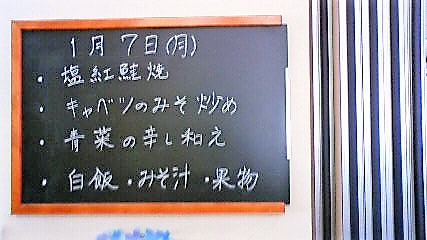 1月7日(月)
・塩紅鮭焼
・キャベツのみそ炒め
・青菜の辛し和え
・白飯・みそ汁・果物